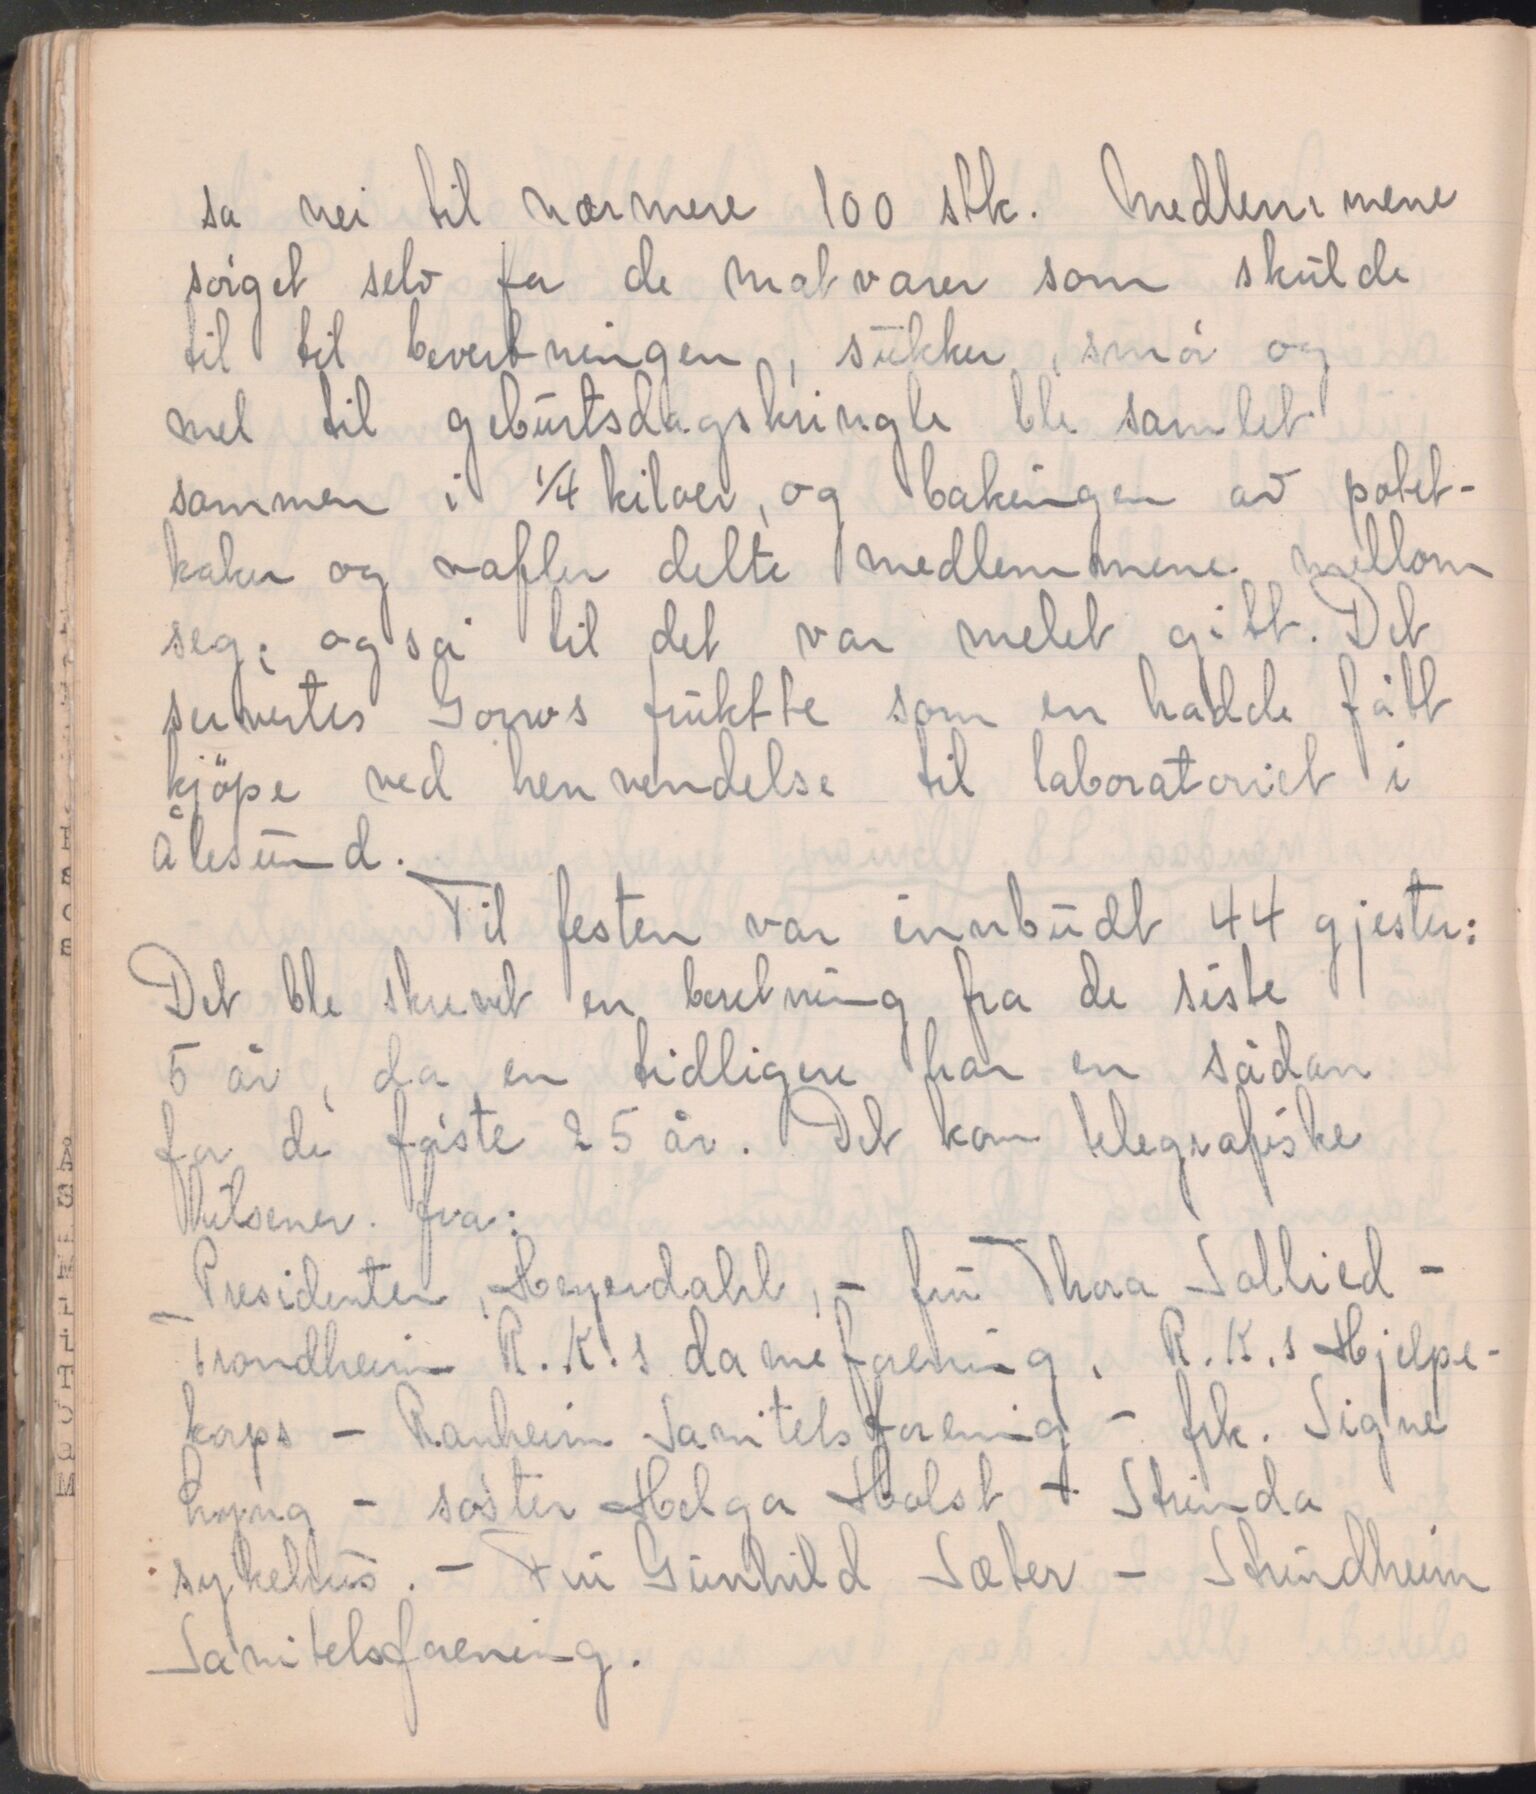 sa nei til nærmere 100 stk. Medlemmene
sørget selv for de matvarer som skulde
til til bevertningen, sukker, smør og
mel til geburtsdagskringle ble samlet
sammen i 1/4 kiloer, og bakingen av potet-
kaker og vafler delte medlemmene mellom
seg, også til det var melet gitt. Det
servertes Gorws frukt te som en hadde fått
kjöpe ved henvendelse til laboratoriet i
Ålesund.
Til festen var innbudt 44 gjester:
Det ble skrevet en beretning fra de siste
5 år, da en tidligere har en sådan
for de første 25 år. Det kom telegrafiske
hilsener fra:
Presidenten, Heyerdahl, - fru Thora Sollied -
Trondheim R.K.s dameforening, R.K.s Hjelpe-
korps - Ranheim Sanitetsforening - frk. Signe
- søster Helga Holst - Strinda
sykehus. - Fru Gunhild Sæter - Strindheim
Sanitetsforening.